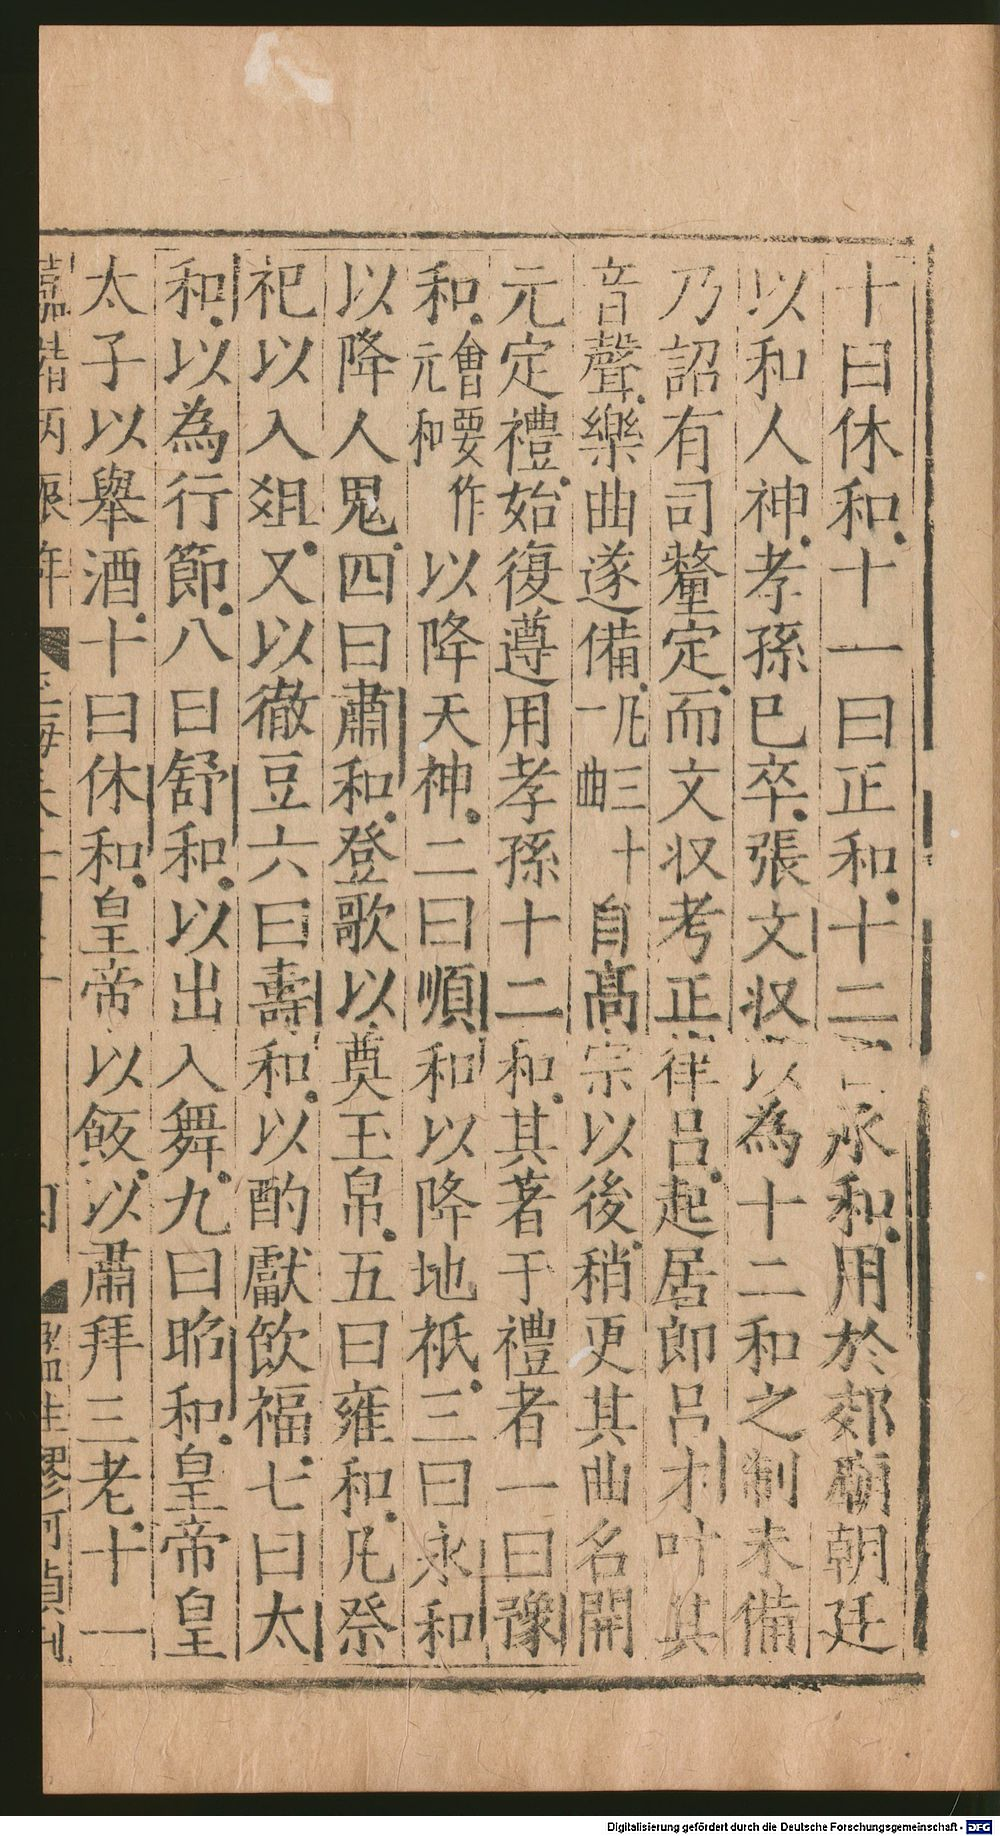 十曰休和十一曰正和十二曰承和用於郊廟朝廷
以和人神孝孫已卒張文収以為十二和之制未備
乃詔有司釐定而文収考正律呂起居郎呂才叶其
音聲樂曲遂備凡三十一曲自髙宗以後稍更其曲名開
元定禮始復遵用孝孫十二和其著于禮者一曰豫
和會要作元和以降天神二曰順和以降地祇三曰永和
以降人鬼四曰肅和登歌以奠玉帛五曰雍和凡祭
祀以入俎又以徹豆六曰壽和以酌獻飲福七曰太
和以為行節八曰舒和以出入舞九曰昭和皇帝皇
太子以舉酒十曰休和皇帝以飯以肅拜三老十一
Digitalisierung gefördert durch die Deutsche Forschungsgemeinschaft - DFG